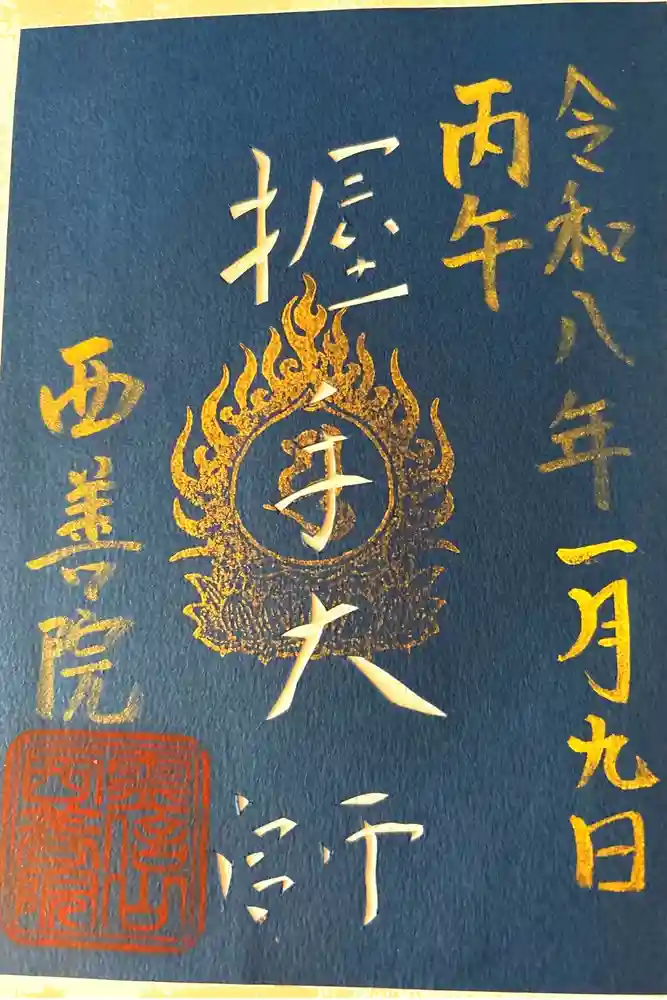 令和八年一月九日
丙午
握手大師
西善院